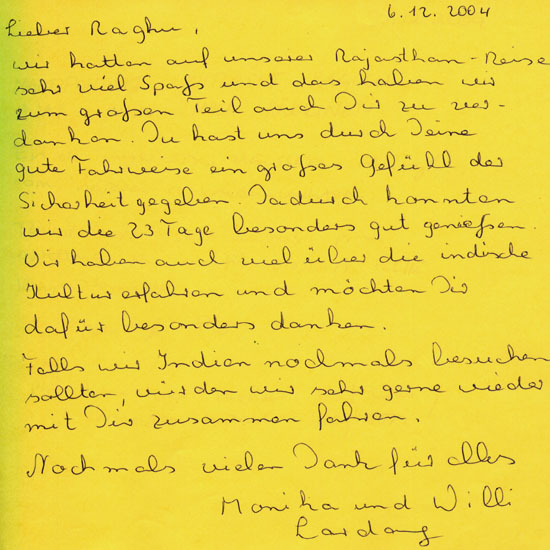 6.12.2004
Lieber Raghu,
wir hatten auf unserer Rajasthan-Reise
sehr viel Spaß und das haben wir
zum großen Teil auch Dir zu ver-
danken. Du hast uns durch Deine
gute Fahrweise ein großes Gefühl der
Sicherheit gegeben. Dadurch konnten
wir die 23 Tage besonders gut genießen.
Wir haben auch viel über die indische
Kultur erfahren und möchten Dir
dafür besonders danken.
Falls wir Indien nochmals besuchen
sollten, würden wir sehr gerne wieder
mit Dir zusammen fahren.
Nochmals vielen Dank für alles
Monika und Willi